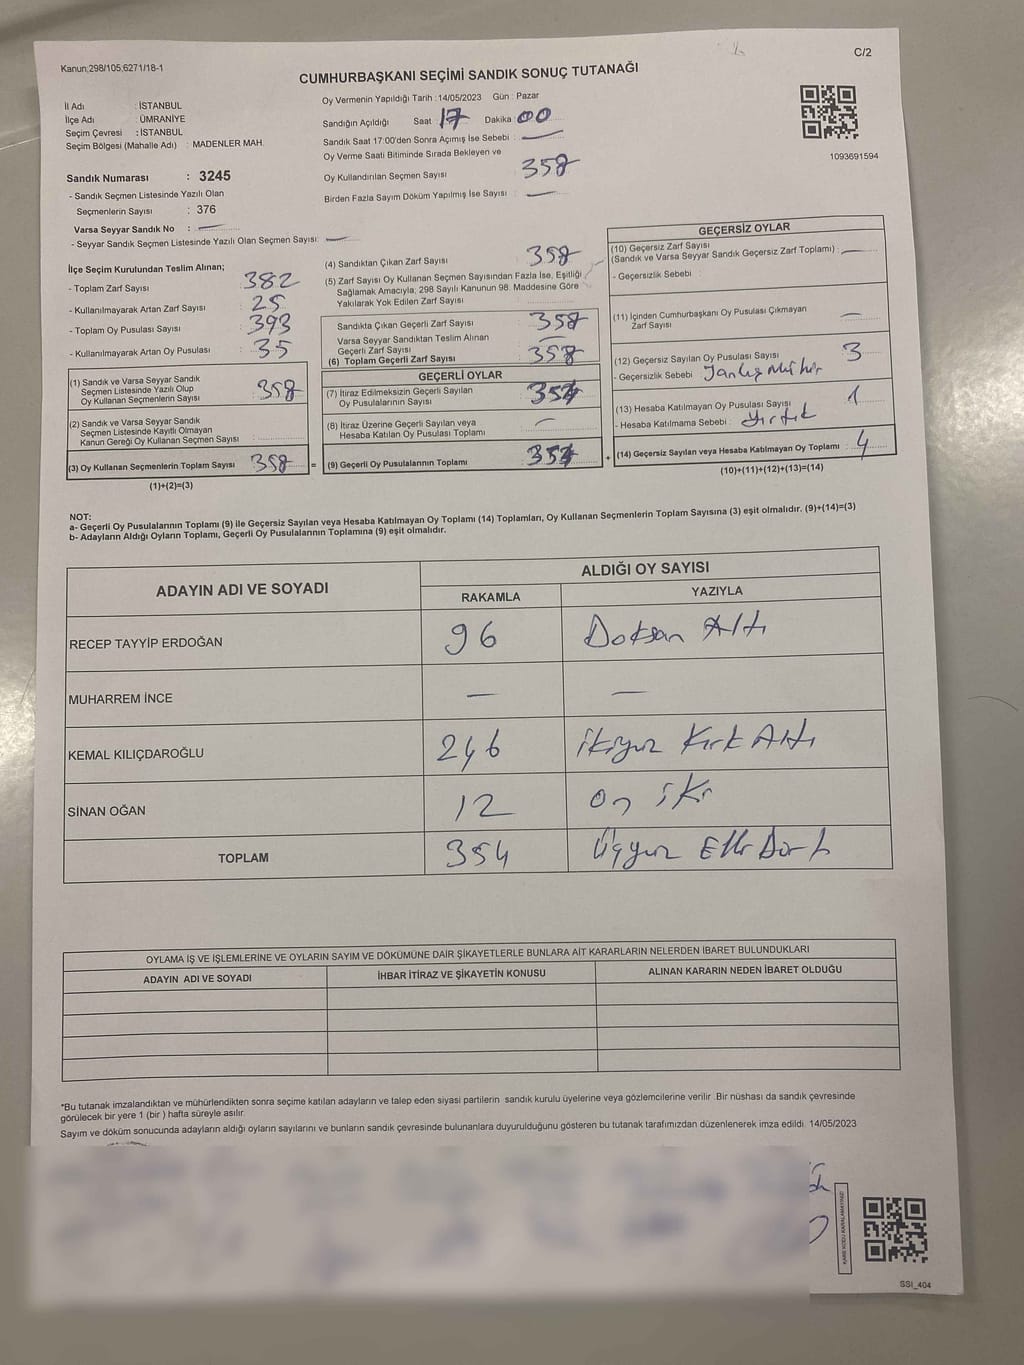 Kanun;298/105,6271/18-1
C/2
CUMHURBAŞKANI SEÇİMİ SANDIK SONUÇ TUTANAĞI
İl Adı : İSTANBUL
İlçe Adı : ÜMRANİYE
Seçim Çevresi : İSTANBUL
Seçim Bölgesi (Mahalle Adı) : MADENLER MAH.
Sandık Numarası : 3245
- Sandık Seçmen Listesinde Yazılı Olan
Seçmenlerin Sayısı : 376
Varsa Seyyar Sandık No : —
- Seyyar Sandık Seçmen Listesinde Yazılı Olan Seçmen Sayısı: —
Oy Vermenin Yapıldığı Tarih :14/05/2023 Gün : Pazar
Sandığın Açıldığı Saat 17 Dakika : 00
Sandık Saat 17:00'den Sonra Açımış İse Sebebi : —
Oy Verme Saati Bitiminde Sırada Bekleyen ve
Oy Kullandırılan Seçmen Sayısı 358
Birden Fazla Sayım Döküm Yapılmış İse Sayısı : —
1093691594
İlçe Seçim Kurulundan Teslim Alınan;
- Toplam Zarf Sayısı : 382
- Kullanılmayarak Artan Zarf Sayısı : 25
- Toplam Oy Pusulası Sayısı : 393
- Kullanılmayarak Artan Oy Pusulası : 35
(1) Sandık ve Varsa Seyyar Sandık
Seçmen Listesinde Yazılı Olup
Oy Kullanan Seçmenlerin Sayısı : 358
(2) Sandık ve Varsa Seyyar Sandık
Seçmen Listesinde Kayıtlı Olmayan
Kanun Gereği Oy Kullanan Seçmen Sayısı :
(3) Oy Kullanan Seçmenlerin Toplam Sayısı : 358
(1)+(2)=(3)
(4) Sandıktan Çıkan Zarf Sayısı : 358
(5) Zarf Sayısı Oy Kullanan Seçmen Sayısından Fazla İse, Eşitliği
Sağlamak Amacıyla; 298 Sayılı Kanunun 98. Maddesine Göre
Yakılarak Yok Edilen Zarf Sayısı :
Sandıkta Çıkan Geçerli Zarf Sayısı : 358
Varsa Seyyar Sandıktan Teslim Alınan
Geçerli Zarf Sayısı : —
(6) Toplam Geçerli Zarf Sayısı : 358
GEÇERLİ OYLAR
(7) İtiraz Edilmeksizin Geçerli Sayılan
Oy Pusulalarının Sayısı : 354
(8) İtiraz Üzerine Geçerli Sayılan veya
Hesaba Katılan Oy Pusulası Toplamı : —
= (9) Geçerli Oy Pusulalarının Toplamı : 354
GEÇERSİZ OYLAR
(10) Geçersiz Zarf Sayısı
(Sandık ve Varsa Seyyar Sandık Geçersiz Zarf Toplamı) : —
- Geçersizlik Sebebi :
(11) İçinden Cumhurbaşkanı Oy Pusulası Çıkmayan
Zarf Sayısı : —
(12) Geçersiz Sayılan Oy Pusulası Sayısı : 3
- Geçersizlik Sebebi : Yanlış Mühür
(13) Hesaba Katılmayan Oy Pusulası Sayısı : 1
- Hesaba Katılmama Sebebi : Yırtık
+ (14) Geçersiz Sayılan veya Hesaba Katılmayan Oy Toplamı : 4
(10)+(11)+(12)+(13)=(14)
NOT:
a- Geçerli Oy Pusulalarının Toplamı (9) ile Geçersiz Sayılan veya Hesaba Katılmayan Oy Toplamı (14) Toplamları, Oy Kullanan Seçmenlerin Toplam Sayısına (3) eşit olmalıdır. (9)+(14)=(3)
b- Adayların Aldığı Oyların Toplamı, Geçerli Oy Pusulalarının Toplamına (9) eşit olmalıdır.
ADAYIN ADI VE SOYADI ALDIĞI OY SAYISI
RAKAMLA YAZIYLA
RECEP TAYYİP ERDOĞAN 96 Doksan Altı
MUHARREM İNCE — —
KEMAL KILIÇDAROĞLU 246 İkiyüz Kırk Altı
SİNAN OĞAN 12 On iki
TOPLAM 354 Üçyüz Elli Dört
OYLAMA İŞ VE İŞLEMLERİNE VE OYLARIN SAYIM VE DÖKÜMÜNE DAİR ŞİKAYETLERLE BUNLARA AİT KARARLARIN NELERDEN İBARET BULUNDUKLARI
ADAYIN ADI VE SOYADI İHBAR İTİRAZ VE ŞİKAYETİN KONUSU ALINAN KARARIN NEDEN İBARET OLDUĞU
*Bu tutanak imzalandıktan ve mühürlendikten sonra seçime katılan adayların ve talep eden siyasi partilerin sandık kurulu üyelerine veya gözlemcilerine verilir. Bir nüshası da sandık çevresinde
görülecek bir yere 1 (bir ) hafta süreyle asılır.
Sayım ve döküm sonucunda adayların aldığı oyların sayılarını ve bunların sandık çevresinde bulunanlara duyurulduğunu gösteren bu tutanak tarafımızdan düzenlenerek imza edildi. 14/05/2023
KARE KODU KARALAMAYINIZ!
SSI_404